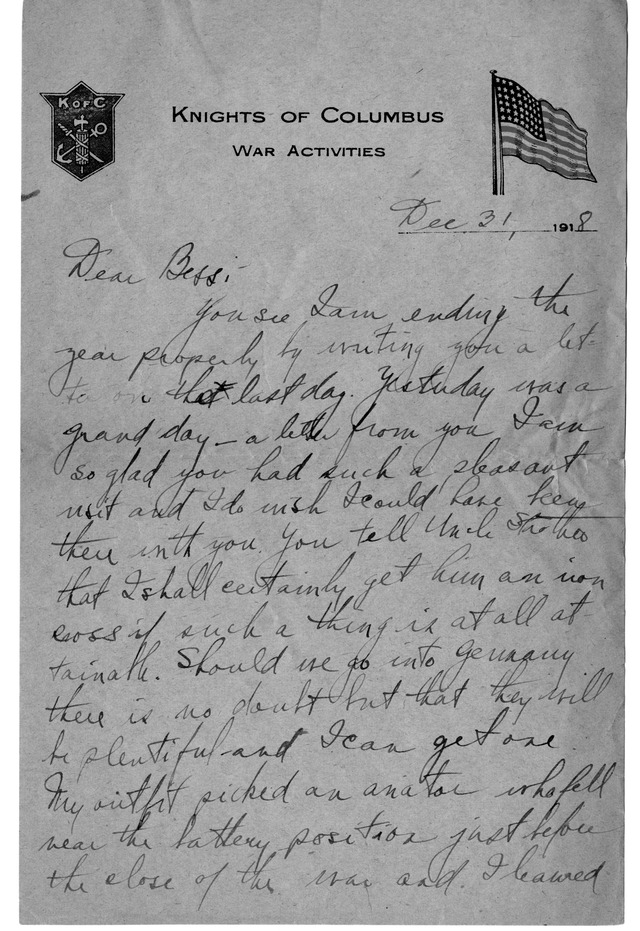 K OF C
KNIGHTS OF COLUMBUS
WAR ACTIVITIES
Dec 31, 1918
Dear Bess:-
You see I am ending the
year properly by writing you a let-
ter on that last day. Yestuday was a
grand day - a letter from you I am
so glad you had such a pleasant
visit and I do wish I could have been
there with you. You tell Uncle Strother
that I shall certainly get him an iron
cross if such a thing is at all at
tainable. Should we go into Germany
there is no doubt but that they will
be plentiful and I can get one.
My outfit picked an aviator who fell
near the battery position just before
the close of the war and I